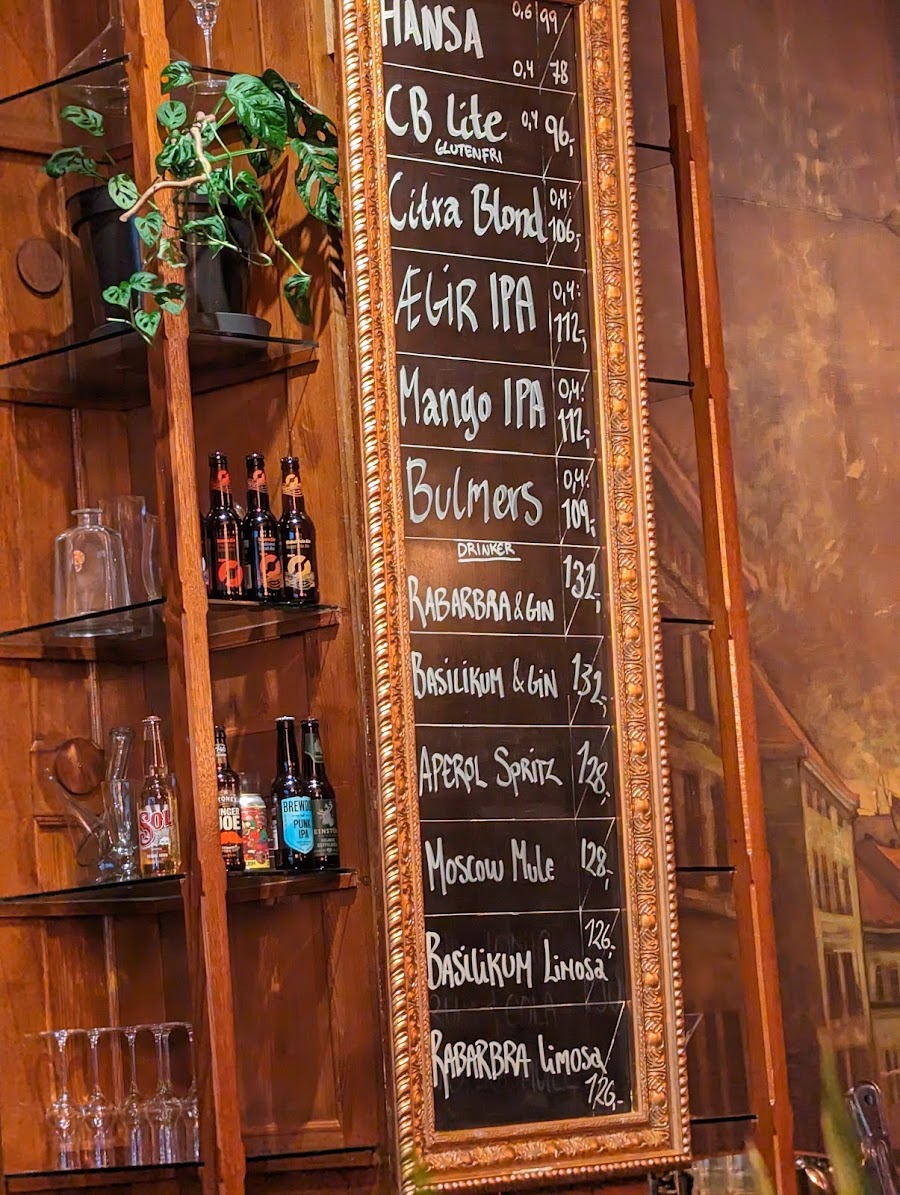 HANSA 0,6 99
0,4 78
CB Lite 0,4 96,-
GLUTENFRI
Citra Blond 0,4: 106,-
ÆGIR IPA 0,4: 112,-
Mango IPA 0,4: 112,-
Bulmers 0,4: 109,-
DRINKER
RABARBRA & GIN 132,-
BASILIKUM & GIN 132,-
APEROL SPRITZ 128,-
MOSCOW MULE 128,-
BASILIKUM LIMOSA 126,-
RABARBRA Limosa 126,-
SOL
JOE
BREWDOG
PUNK
IPA